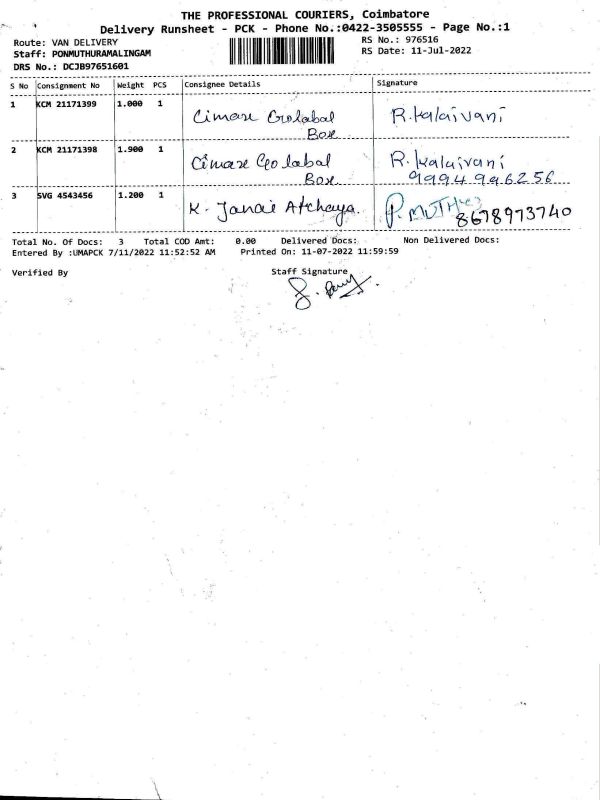 THE PROFESSIONAL COURIERS, Coimbatore
Delivery Runsheet - PCK - Phone No.:0422-3505555 - Page No.:1
Route: VAN DELIVERY RS No.: 976516
Staff: PONMUTHURAMALINGAM RS Date: 11-Jul-2022
DRS No.: DCJB97651601
S No Consignment No Weight PCS Consignee Details Signature
1 KCM 21171399 1.000 1 R.kalaivani
Box
2 KCM 21171398 1.900 1 R. kalaivani
Box 9994996256
3 SVG 4543456 1.200 1 K. Janai Atchaya. P. 8678973740
Total No. Of Docs: 3 Total COD Amt: 0.00 Delivered Docs: Non Delivered Docs:
Entered By :UMAPCK 7/11/2022 11:52:52 AM Printed On: 11-07-2022 11:59:59
Verified By Staff Signature